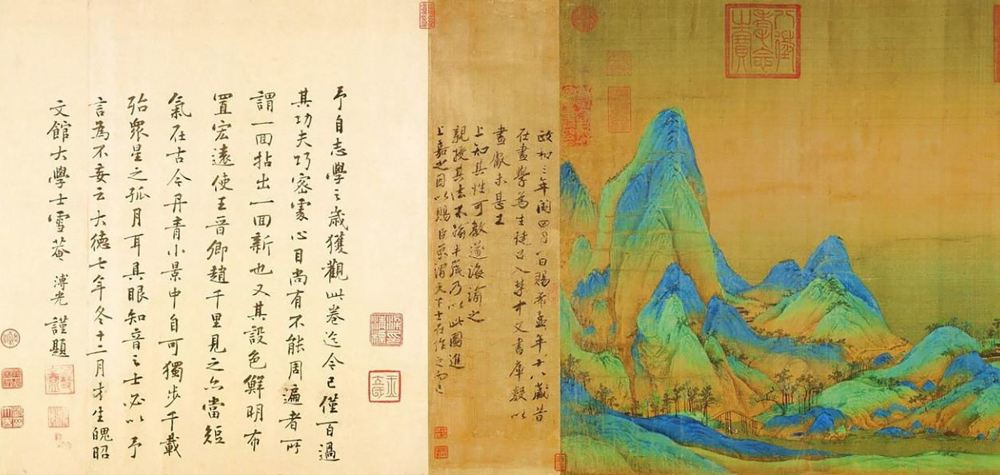 八徵耄念之寶
政和三年閏四月八日賜希孟年十八歲昔
在畫學為生徒召入禁中文書庫數以
畫獻未甚工
上知其性可教遂誨諭之
親授其法不踰半歲乃以此圖進
上嘉之因以賜臣京謂天下士在作之而已
予自志學之歲獲觀此卷迄今已僅百過
其功夫巧密處心目尚有不能周遍者所
謂一回拈出一回新也又其設色鮮明布
置宏遠使王晉卿趙千里見之亦當短
氣在古今丹青小景中自可獨步千載
殆眾星之孤月耳具眼知音之士必以予
言為不妄云大德七年冬十二月才生魄昭
文館大學士雪菴溥光謹題